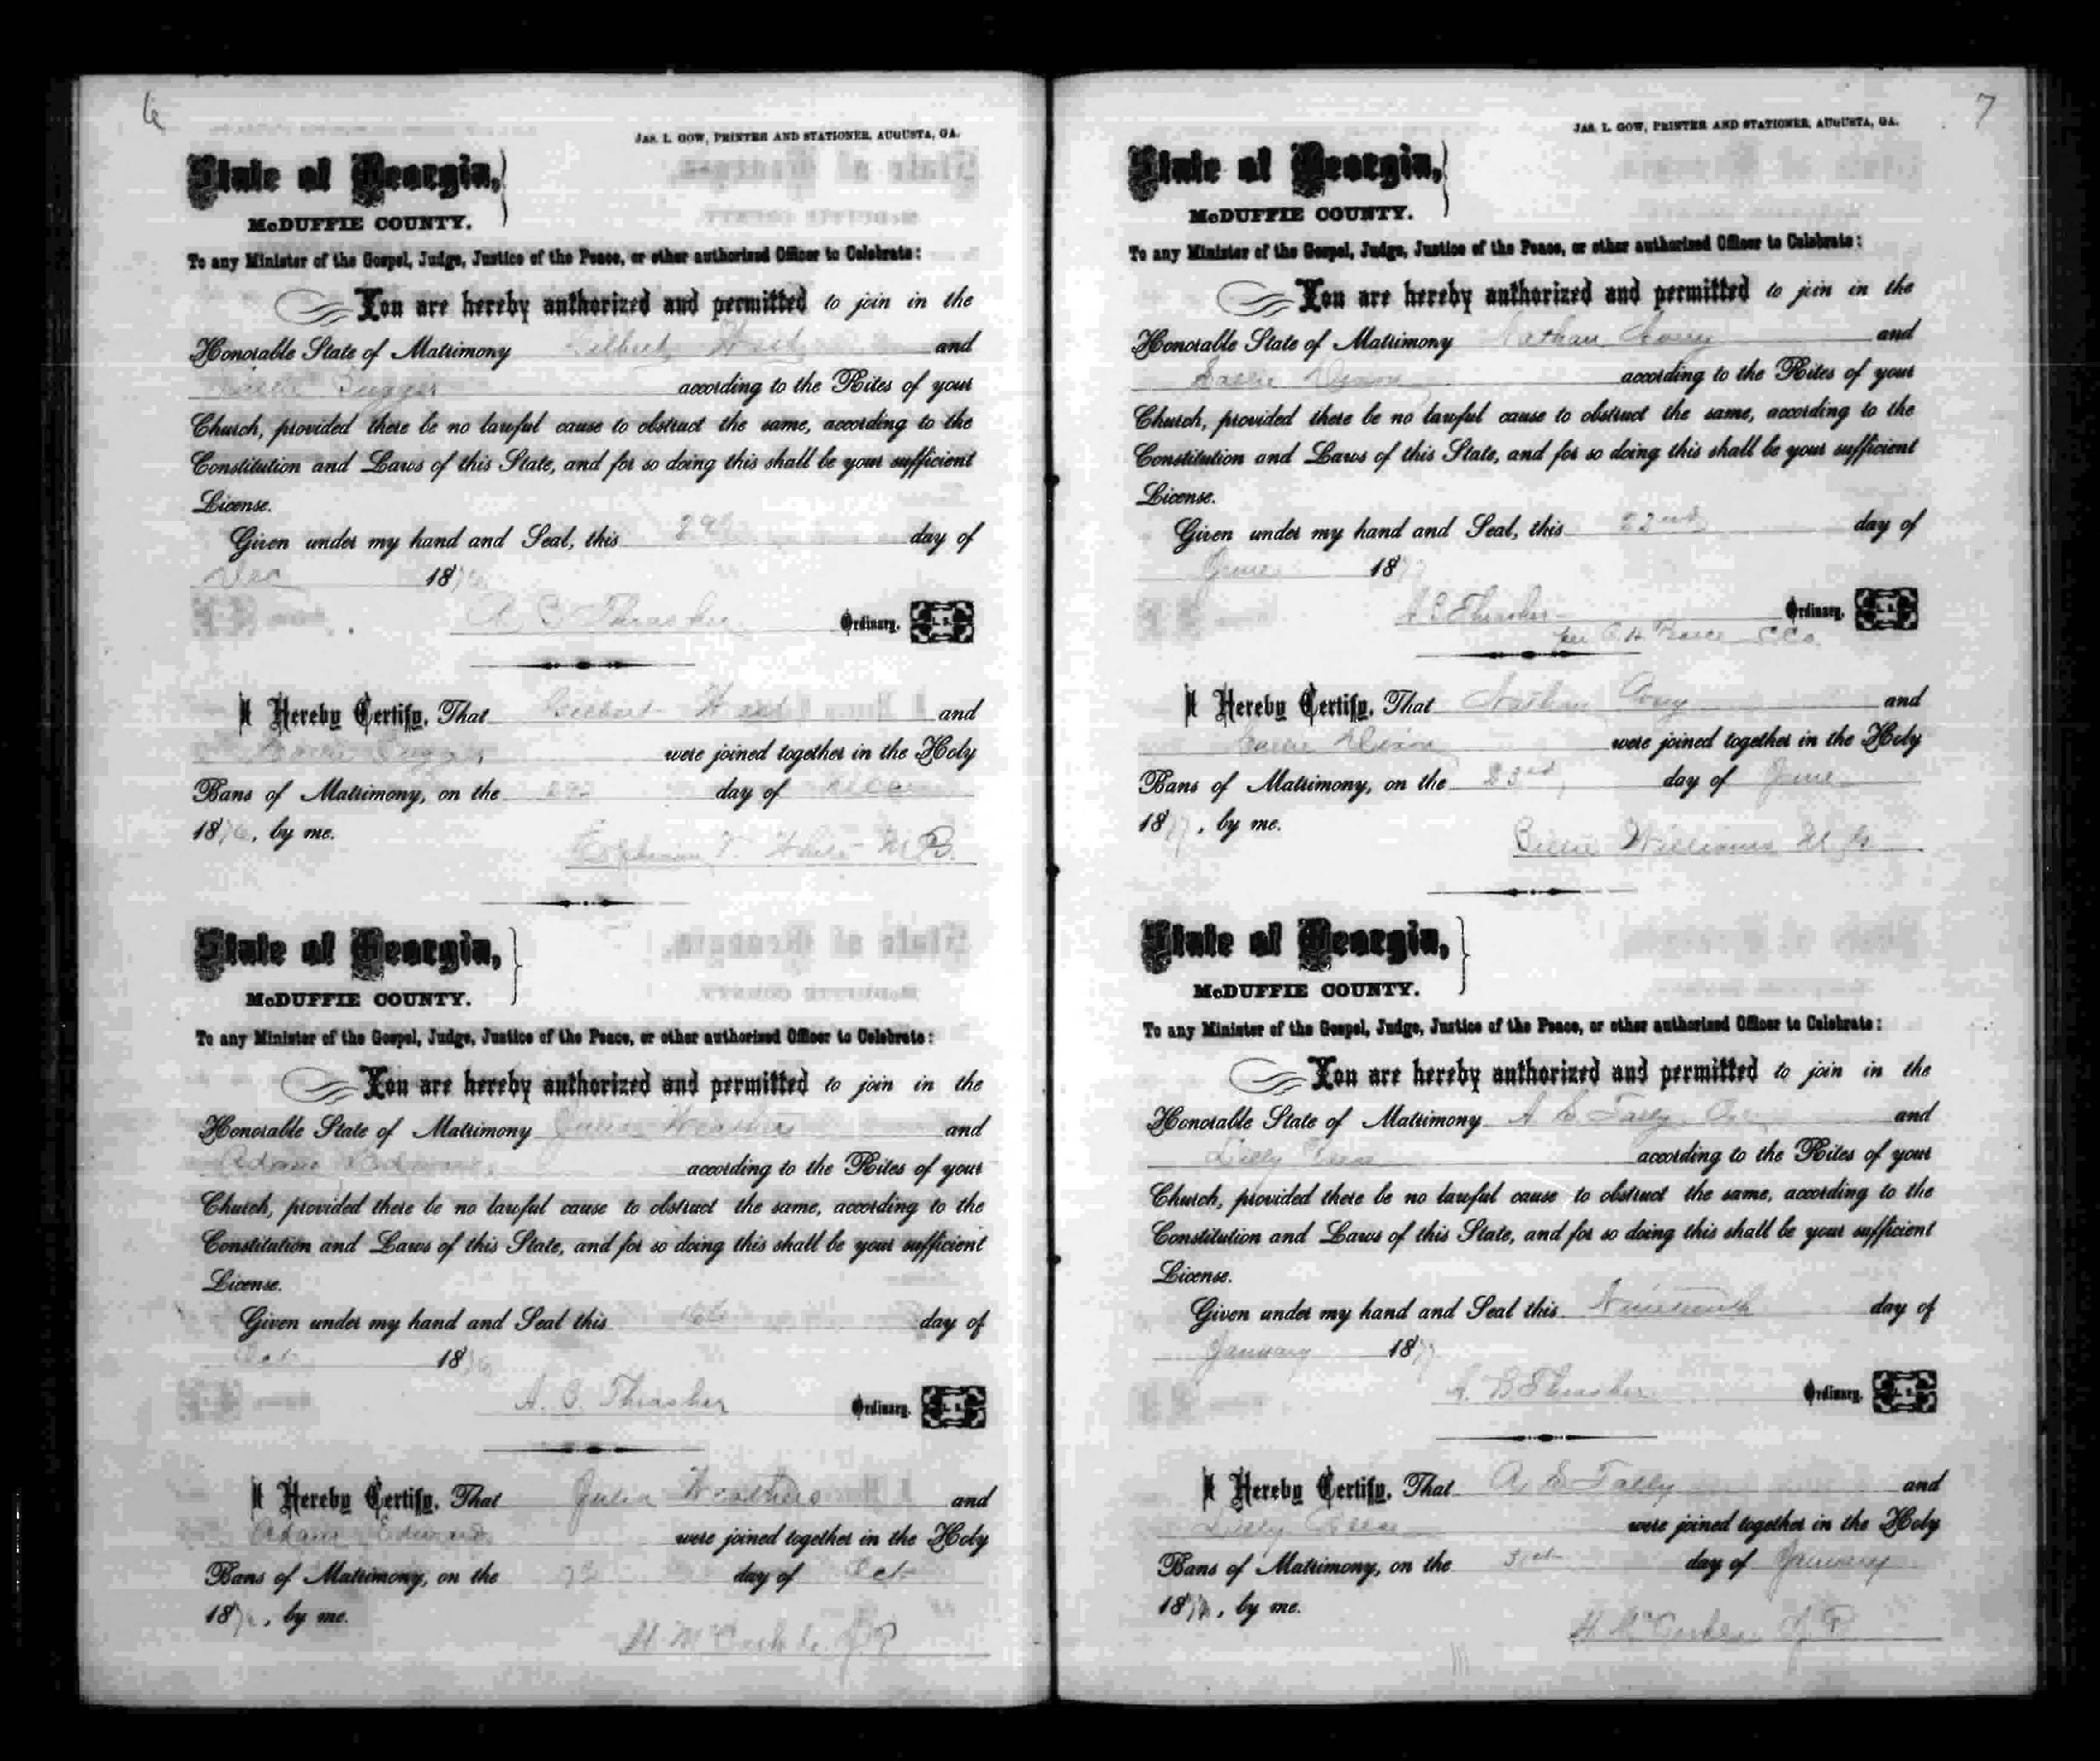 6
JAS. L. GOW, PRINTER AND STATIONER, AUGUSTA, GA.
State of Georgia,
McDUFFIE COUNTY.
To any Minister of the Gospel, Judge, Justice of the Peace, or other authorized Officer to Celebrate:
You are hereby authorized and permitted to join in the
Honorable State of Matrimony Gilbert and
according to the Rites of your
Church, provided there be no lawful cause to obstruct the same, according to the
Constitution and Laws of this State, and for so doing this shall be your sufficient
License.
Given under my hand and Seal, this day of
Dec 1876
A. B. Thrasher Ordinary. L. S.
I Hereby Certify, That Gilbert and
were joined together in the Holy
Bans of Matrimony, on the day of Dec
1876, by me.
State of Georgia,
McDUFFIE COUNTY.
To any Minister of the Gospel, Judge, Justice of the Peace, or other authorized Officer to Celebrate:
You are hereby authorized and permitted to join in the
Honorable State of Matrimony Julia Weathers and
Adam Edwards according to the Rites of your
Church, provided there be no lawful cause to obstruct the same, according to the
Constitution and Laws of this State, and for so doing this shall be your sufficient
License.
Given under my hand and Seal this day of
Oct 1876
A. B. Thrasher Ordinary. L. S.
I Hereby Certify, That Julia Weathers and
Adam Edwards were joined together in the Holy
Bans of Matrimony, on the day of Oct
1876, by me.
H. J. P.
7
JAS. L. GOW, PRINTER AND STATIONER, AUGUSTA, GA.
State of Georgia,
McDUFFIE COUNTY.
To any Minister of the Gospel, Judge, Justice of the Peace, or other authorized Officer to Celebrate:
You are hereby authorized and permitted to join in the
Honorable State of Matrimony Nathan Avery and
Dixon according to the Rites of your
Church, provided there be no lawful cause to obstruct the same, according to the
Constitution and Laws of this State, and for so doing this shall be your sufficient
License.
Given under my hand and Seal, this 22nd day of
June 1877
A B Thrasher Ordinary. L. S.
per
I Hereby Certify, That Nathan Avery and
Dixon were joined together in the Holy
Bans of Matrimony, on the 23rd day of June
1877, by me.
Williams
State of Georgia,
McDUFFIE COUNTY.
To any Minister of the Gospel, Judge, Justice of the Peace, or other authorized Officer to Celebrate:
You are hereby authorized and permitted to join in the
Honorable State of Matrimony A E Tally and
Lilly according to the Rites of your
Church, provided there be no lawful cause to obstruct the same, according to the
Constitution and Laws of this State, and for so doing this shall be your sufficient
License.
Given under my hand and Seal this Nineteenth day of
January 1877
A. B Thrasher Ordinary. L. S.
I Hereby Certify, That A E Tally and
Lilly were joined together in the Holy
Bans of Matrimony, on the day of January
187, by me.
H. J. P.